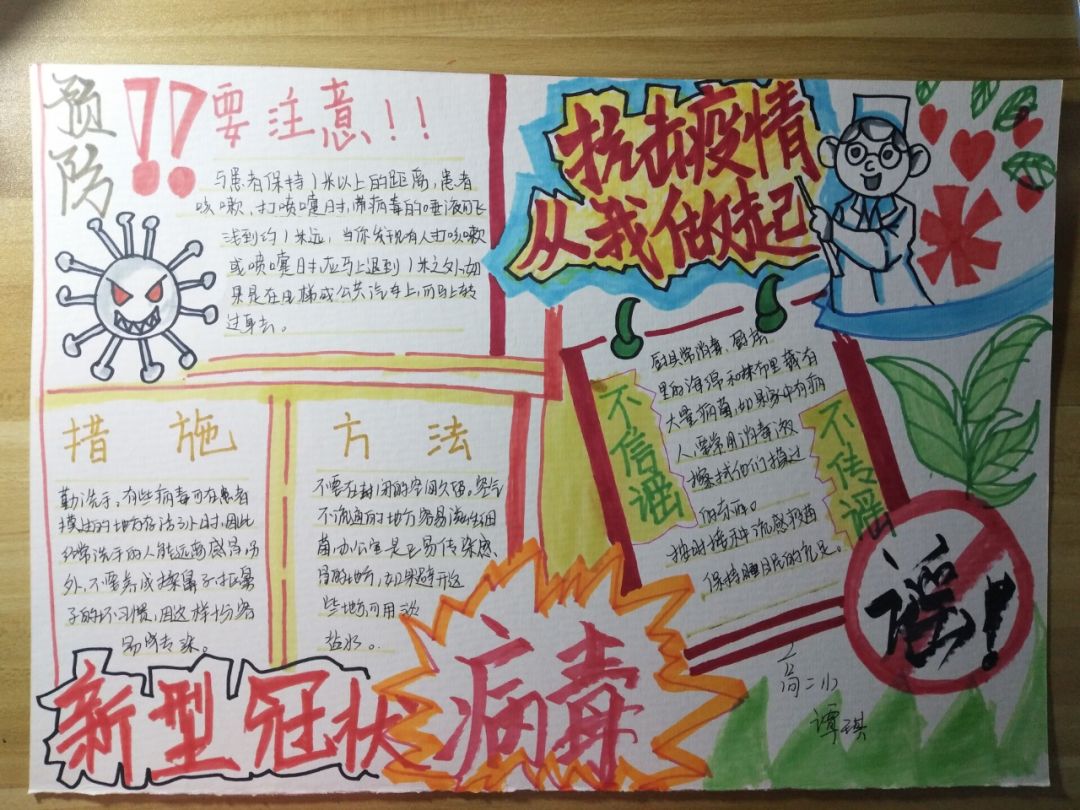 预防
!! 要注意!!
与患者保持1米以上的距离,患者
咳嗽,打喷嚏时,带病毒的唾液可飞
浅到约1米远,当你发现有人打咳嗽
或喷嚏时,应马上退到1米之外,如
果是在电梯或公共汽车上,可马上转
过身去。
抗击疫情
从我做起
措施
勤洗手,有些病毒可在患者
摸过的地方存活3小时,因此
经常洗手的人能远离感冒,另
外,不要养成揉鼻子,抠鼻
子的坏习惯,因这样
传染。
方法
不要在封闭的空间久留。空气
不流通的地方容易滋生细
菌,办公室是易传染感
冒的地方,如果避开这
些地方可用
盐水。
不信谣
厨具常消毒、厨房
里的海绵和抹布里藏有
大量病菌,如果家中有病
人,要常用消毒液
擦拭他们摸过
的东西。
按时接种流感疫苗
保持睡眠的充足。
不传谣
谣!
新型冠状
病毒
高二小
谭琪